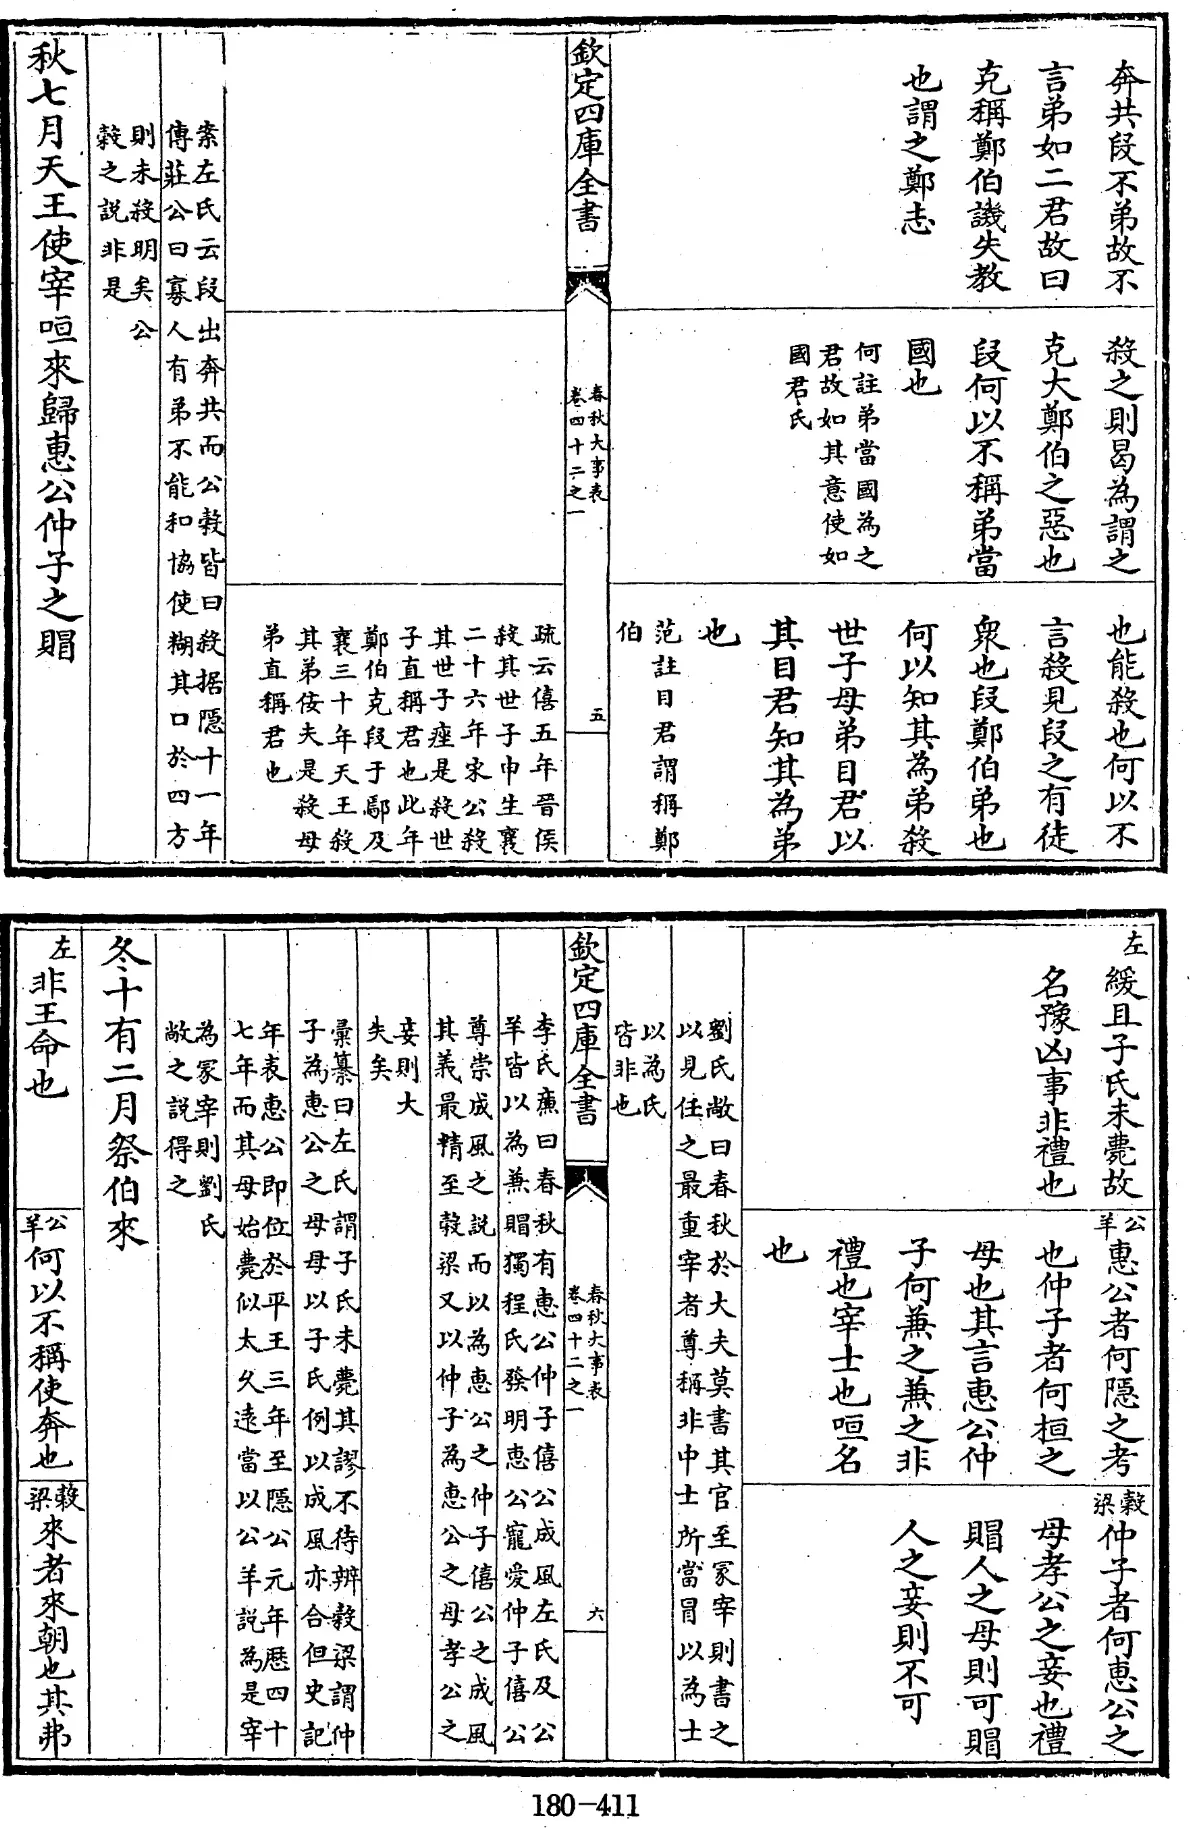 奔共段不弟故不
言弟如二君故曰
克稱鄭伯譏失教
也謂之鄭志
殺之則曷為謂之
克大鄭伯之惡也
段何以不稱弟當
國也
何註弟當國為之
君故如其意使如
國君氏
也能殺也何以不
言殺見段之有徒
衆也段鄭伯弟也
何以知其為弟殺
世子母弟目君以
其目君知其為弟
也
范註目君謂稱鄭
伯
欽定四庫全書
春秋大事表
卷四十二之一
五
疏云僖五年晉侯
殺其世子申生襄
二十六年宋公殺
其世子痤是殺世
子直稱君也此年
鄭伯克段于鄢及
襄三十年天王殺
其弟佞夫是殺母
弟直稱君也
案左氏云段出奔共而公穀皆曰殺据隱十一年
傳莊公曰寡人有弟不能和協使糊其口於四方
則未殺明矣公
穀之説非是
秋七月天王使宰咺來歸惠公仲子之賵
左
緩且子氏未薨故
名豫凶事非禮也
公羊
惠公者何隱之考
也仲子者何桓之
母也其言惠公仲
子何兼之兼之非
禮也宰士也咺名
也
穀梁
仲子者何惠公之
母孝公之妾也禮
賵人之母則可賵
人之妾則不可
劉氏敞曰春秋於大夫莫書其官至冢宰則書之
以見任之最重宰者尊稱非中士所當冒以為士
以為氏
皆非也
欽定四庫全書
春秋大事表
卷四十二之一
六
李氏廉曰春秋有惠公仲子僖公成風左氏及公
羊皆以為兼賵獨程氏發明惠公寵愛仲子僖公
尊崇成風之説而以為惠公之仲子僖公之成風
其義最精至穀梁又以仲子為惠公之母孝公之
妾則大
失矣
彙纂曰左氏謂子氏未薨其謬不待辨穀梁謂仲
子為惠公之母母以子氏例以成風亦合但史記
年表惠公即位於平王三年至隱公元年歷四十
七年而其母始薨似太久遠當以公羊説為是宰
為冢宰則劉氏
敞之説得之
冬十有二月祭伯來
左
非王命也
公羊
何以不稱使奔也
穀梁
來者來朝也其弗
180-411